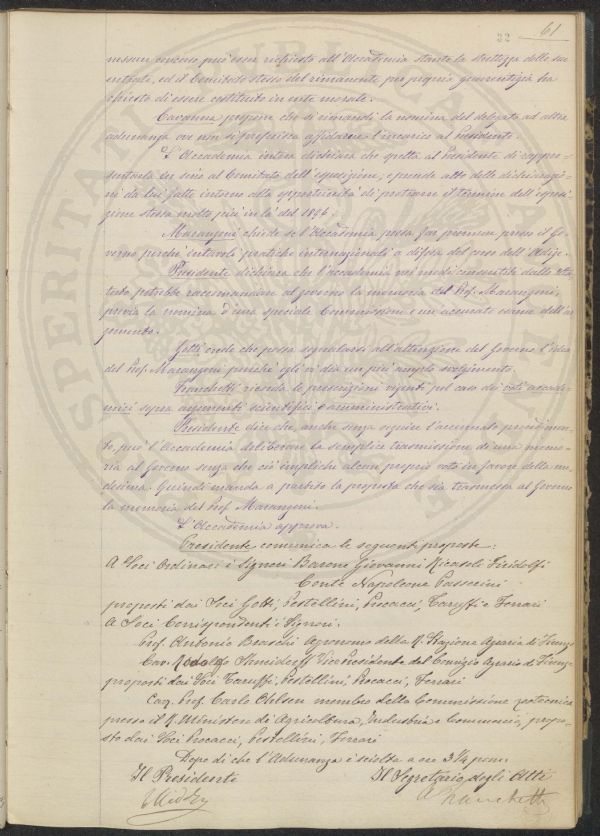 22 61
nessun concorso può esser richiesto all'Accademia stante la strettezza delle sue
entrate, ed il Comitato stesso del rimanente per propria guarentigia ha
chiesto di essere costituito in ente morale.
Caruana propone che si rimandi la nomina del delegato ad altra
adunanza ove non si preferisca affidarne l'incarico al Presidente.
L'Accademia intera dichiara che spetta al Presidente di rappre-
sentarla in seno al Comitato dell'esposizione, e prende atto delle dichiarazio-
ni da lui fatte intorno alla opportunità di protrarre il termine dell'esposi-
zione stessa molto più in là del 1896.
Marangoni chiede se l'Accademia possa far premura presso il Go-
verno perché intavoli pratiche internazionali a difesa del corso dell'Adige.
Presidente dichiara che l'accademia nei modi consentiti dallo Sta-
tuto, potrebbe raccomandare al governo la memoria del Prof. Marangoni,
previa la nomina d'una speciale Commissione e un accurato esame dell'ar-
gomento.
Gotti crede che possa segnalarsi all'attenzione del Governo l'idea
del Prof. Marangoni purché egli vi dia un più ampio svolgimento.
Franchetti ricorda le prescrizioni vigenti pel caso dei voti accade-
mici sopra argomenti scientifici e amministrativi.
Presidente dice che, anche senza seguire l'accennato procedimen-
to, può l'Accademia deliberare la semplice trasmissione di una memo-
ria al Governo senza che ciò implichi alcun proprio voto in favore della me-
desima. Quindi manda a partito la proposta che sia trasmessa al Governo
la memoria del Prof. Marangoni.
L'Accademia approva.
Presidente comunica le seguenti proposte:
A Soci Ordinari i Signori Barone Giovanni Ricasoli Firidolfi
Conte Napoleone Passerini
proposti dai Soci Gotti, Pestellini, Procacci, Taruffi e Ferrari
A Soci Corrispondenti i Signori.
Prof. Antonio Beaschi Agronomo della R. Stazione Agraria di Firenze
Cav. Rodolfo Schneiderff Vice Presidente del Comizio Agrario di Firenze
proposti dai Soci Taruffi, Pestellini, Procacci, Ferrari
Cav. Prof. Carlo Ohlsen membro della Commissione zootecnica
presso il R. Ministero di Agricoltura, Industria e Commercio, propo-
sto dai Soci Procacci, Pestellini, Ferrari
Dopo di che l'Adunanza è sciolta a ore 3 1/4 pom.
Il Presidente Il Segretario degli Atti
Franchetti